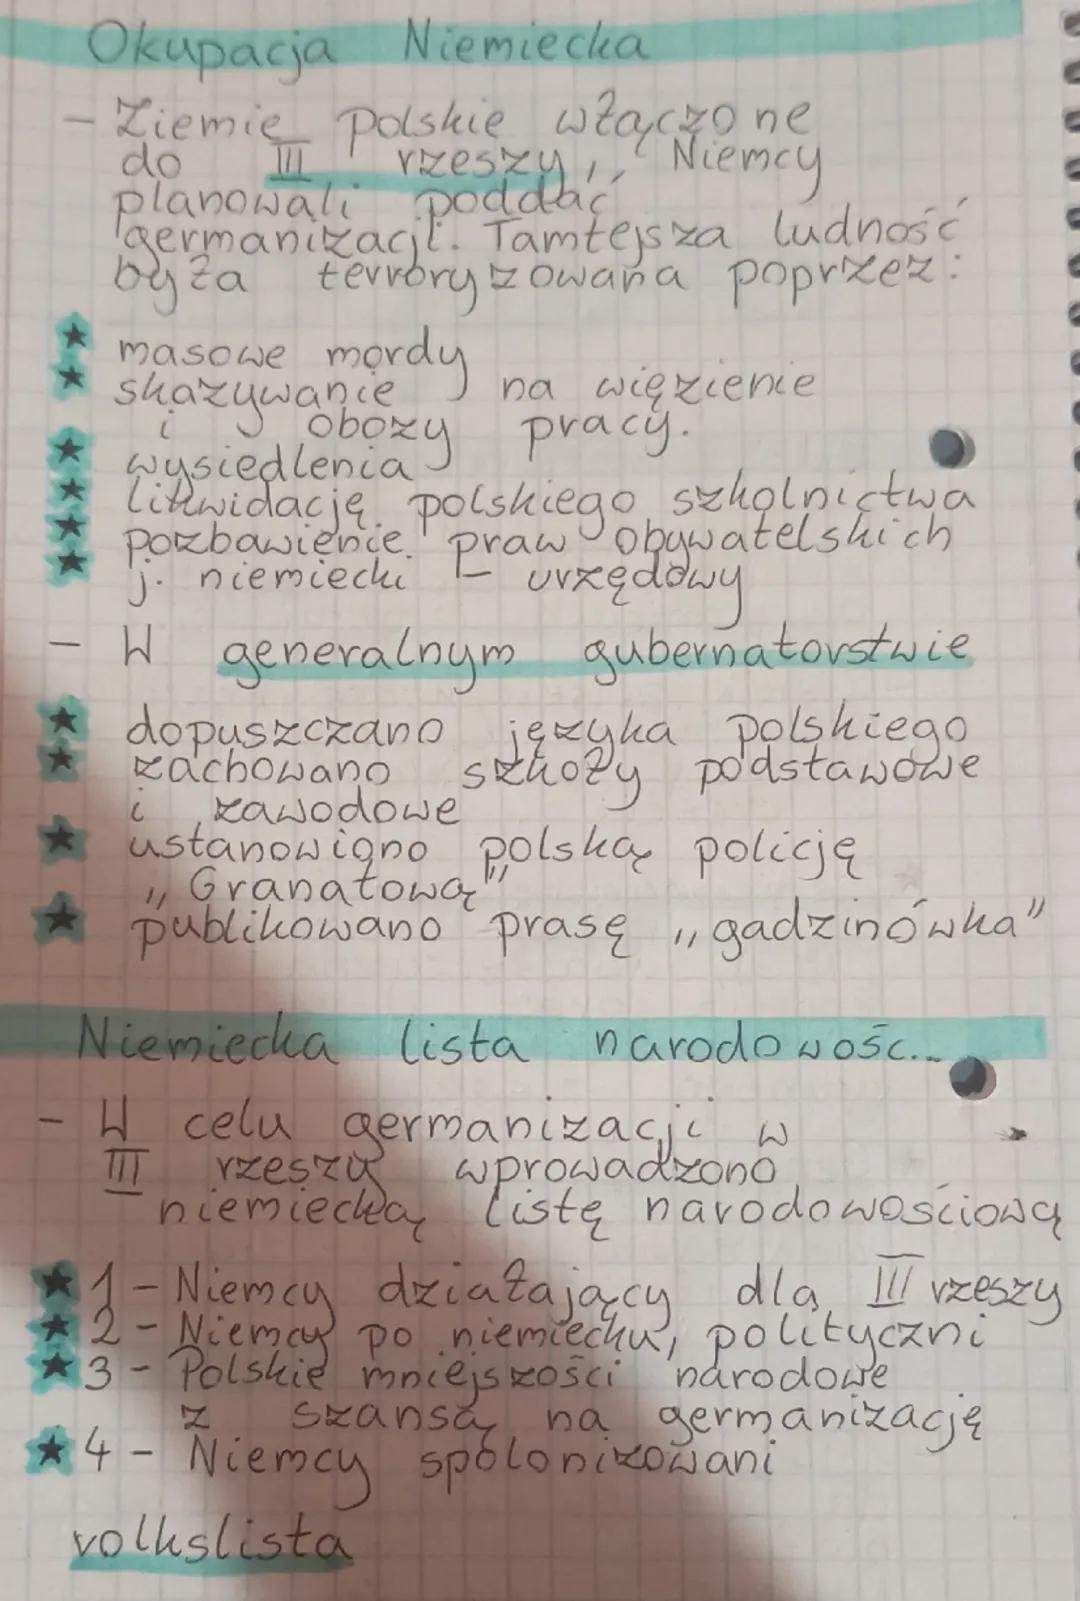 Okupacja Niemiecka
- Ziemie polskie włączone
do III rzeszy, Niemcy
planowali poddać
germanizacji. Tamtejsza ludność
była terroryzowana poprzez:
★ masowe mordy
★ skazywanie na więzienie
i obozy pracy.
★ wysiedlenia
★ likwidację polskiego szkolnictwa
★ pozbawienie praw obywatelskich
★ j. niemiecki - urzędowy
- W generalnym gubernatorstwie
★ dopuszczano języka polskiego
★ zachowano szkoły podstawowe
i zawodowe
★ ustanowiono polską policję
„Granatową"
★ publikowano prasę „gadzinówka"
Niemiecka lista narodowośc...
- W celu germanizacji w
III rzeszy wprowadzono
niemiecką listę narodowościową
★ 1 - Niemcy działający dla III rzeszy
★ 2 - Niemcy po niemiecku, polityczni
★ 3 - Polskie mniejszości narodowe
z szansą na germanizację
★ 4 - Niemcy spolonizowani
volkslista